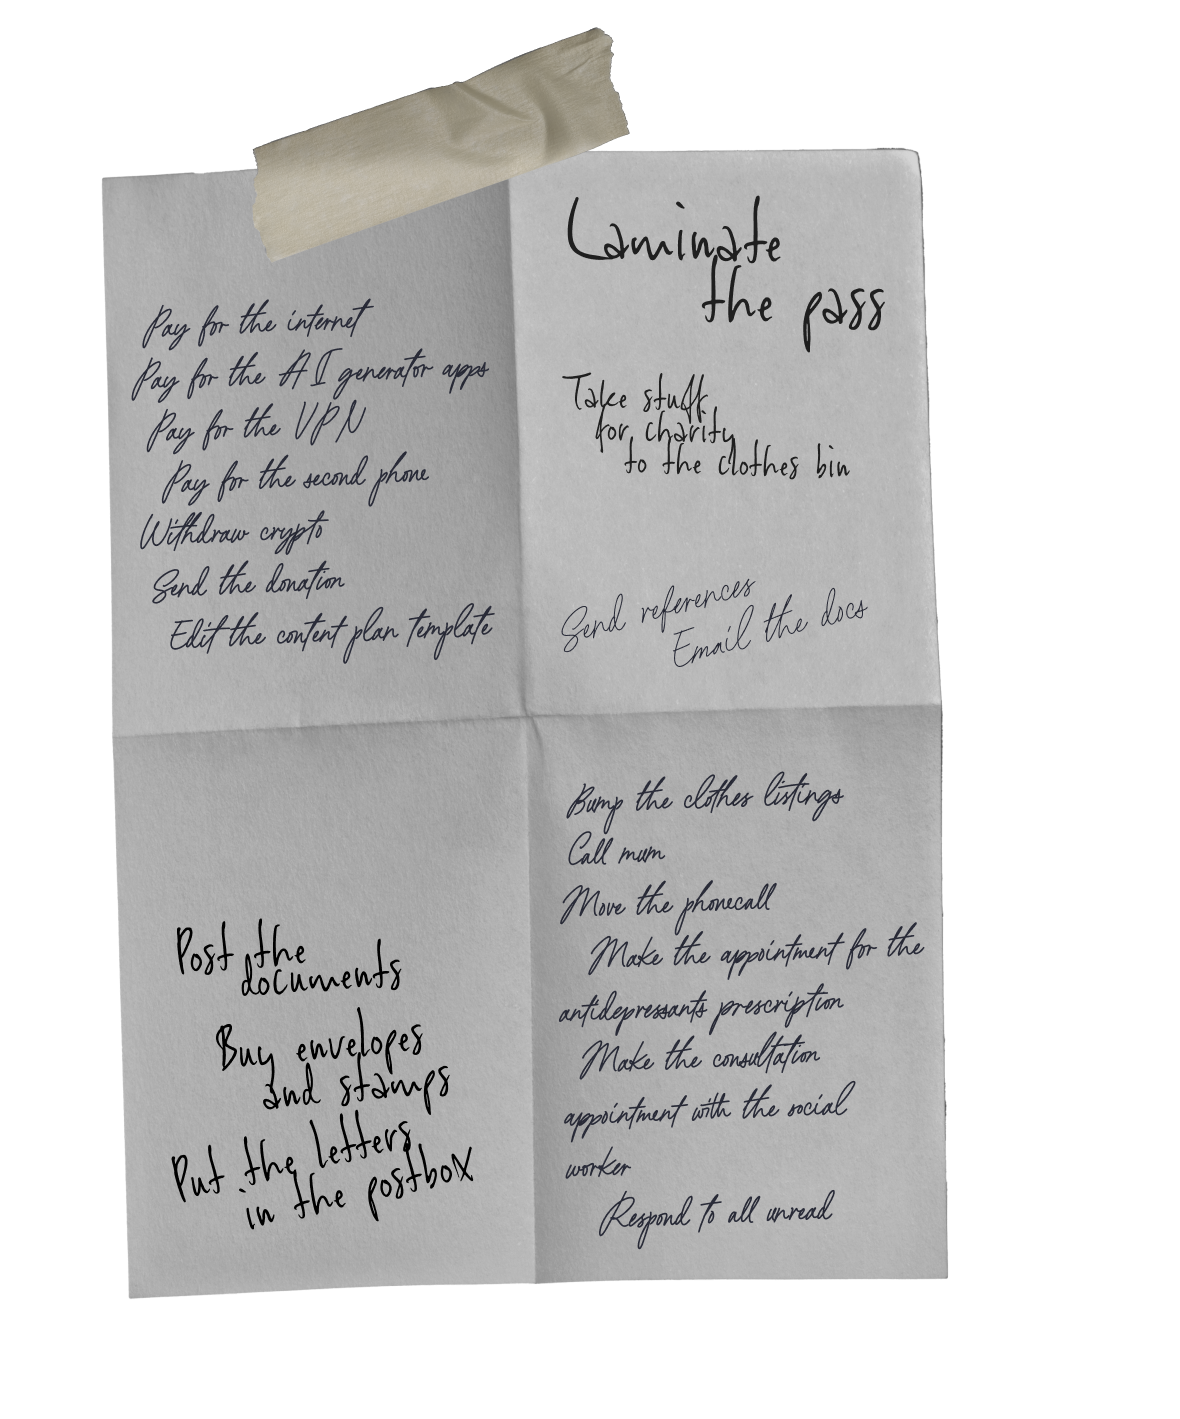 Pay for the internet
Pay for the AI generator apps
Pay for the VPN
Pay for the second phone
Withdraw crypto
Send the donation
Edit the content plan template
Laminate
the pass
Take stuff
for charity
to the clothes bin
Send references
Email the docs
Post the
documents
Buy envelopes
and stamps
Put the letters
in the postbox
Bump the clothes listings
Call mum
Move the phonecall
Make the appointment for the
antidepressants prescription
Make the consultation
appointment with the social
worker
Respond to all unread